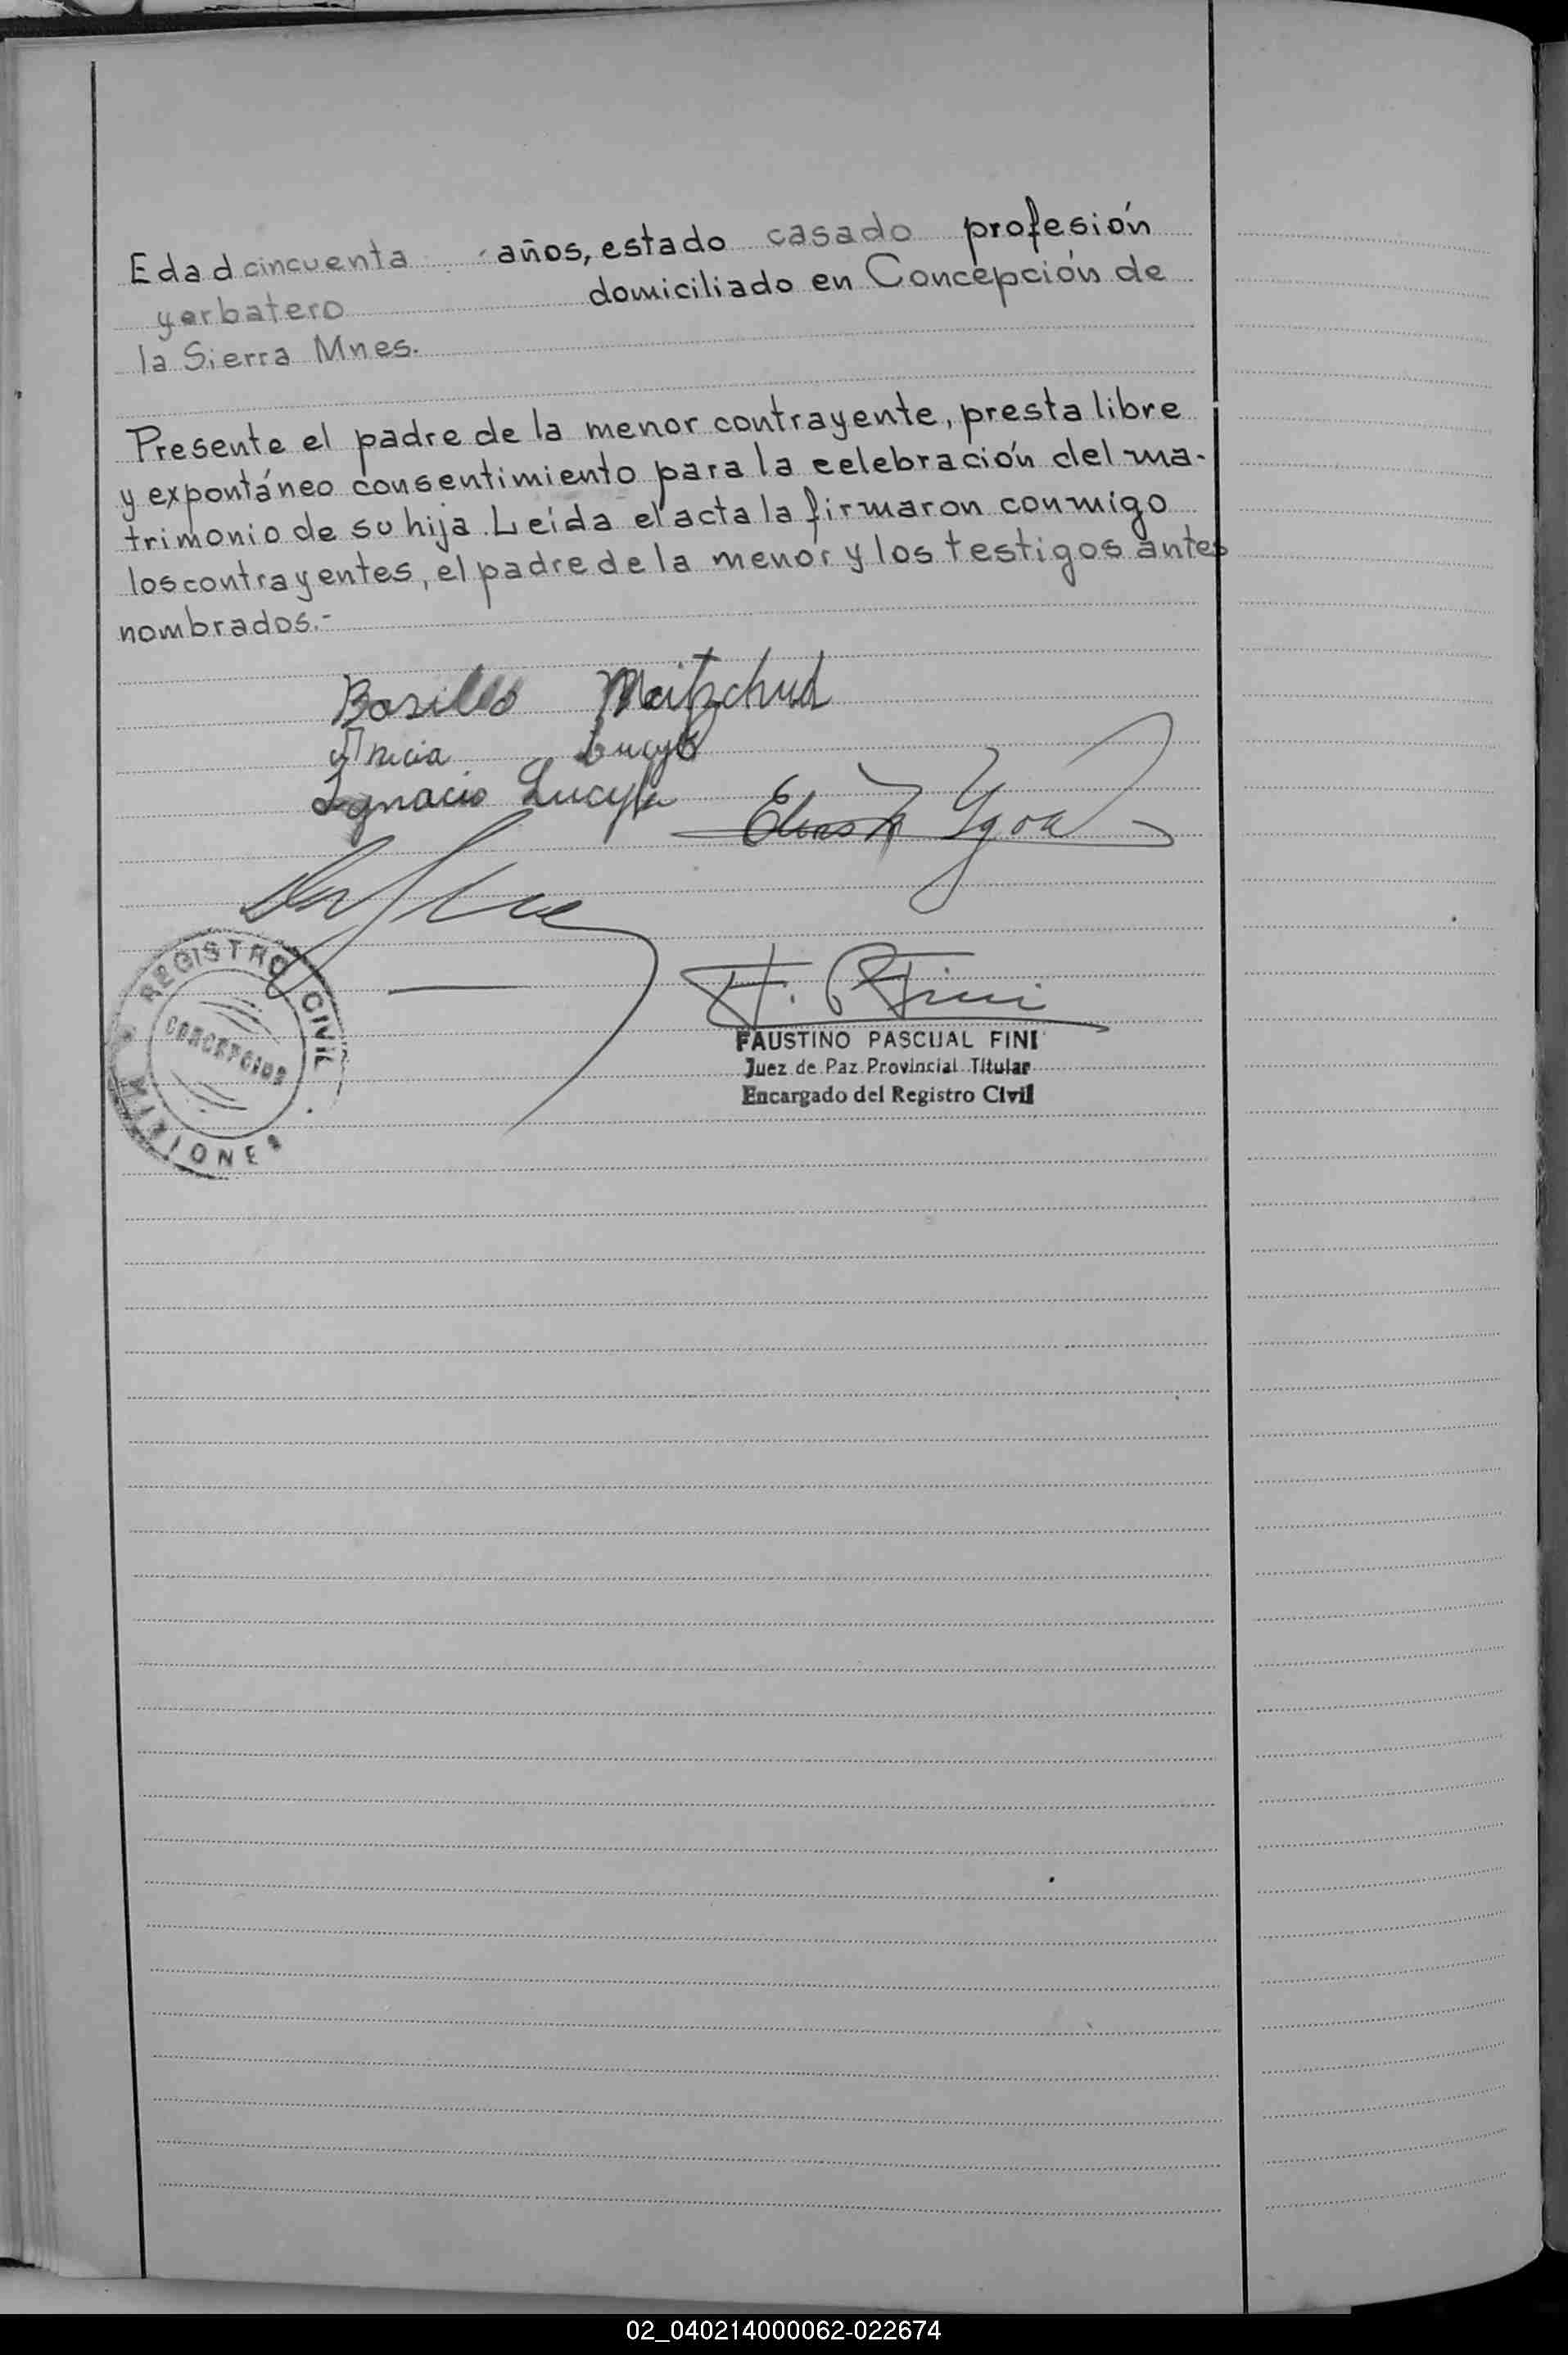 Edad cincuenta años, estado casado profesión
yerbatero domiciliado en Concepción de
la Sierra Mnes.
Presente el padre de la menor contrayente, presta libre
y expontáneo consentimiento para la celebración del ma-
trimonio de su hija. Leída el acta la firmaron conmigo
los contrayentes, el padre de la menor y los testigos antes
nombrados.-
Basilio
Ignacio
F. P. Fini
REGISTRO CIVIL
CONCEPCION
MISIONES
FAUSTINO PASCUAL FINI
Juez de Paz Provincial Titular
Encargado del Registro Civil
02_040214000062-022674